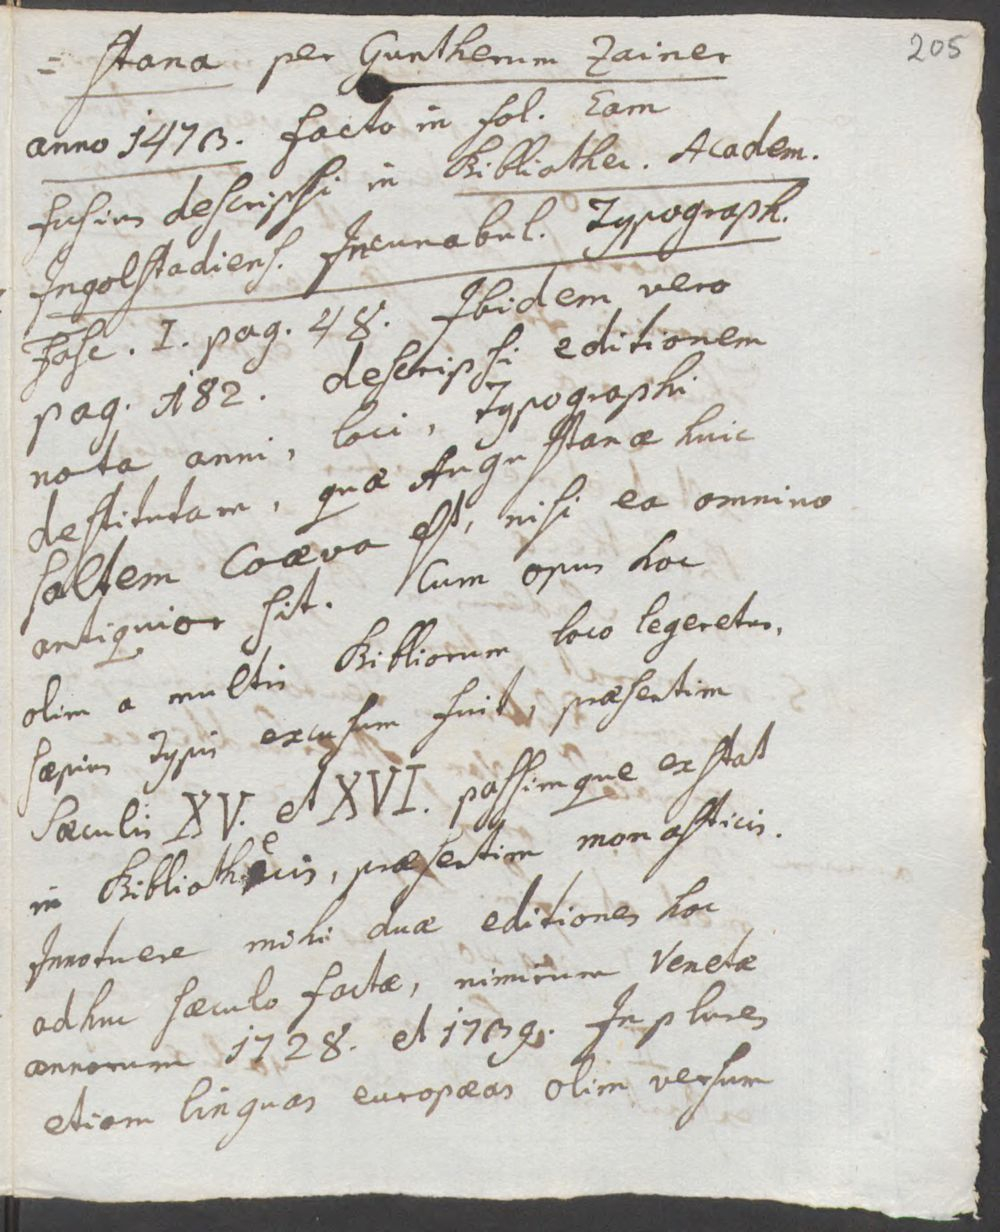 205
= stana per Guntherum Zainer
anno 1473. facta in fol. Eam
fusius descripsi in Bibliothec. Academ.
Ingolstadiens. Incunabul. Typograph.
Fasc. I. pag. 48. Ibidem vero
pag. 182. descripsi editionem
nota anni, loci, Typographi
destitutam, quæ Augustanæ huic
saltem coæva est, nisi ea omnino
antiquior sit. Cum opus hoc
olim a multis Bibliorum loco legeretur,
sæpius typis excusum fuit, præsertim
Sæculis XV. et XVI. passimque exstat
in Bibliothecis, præsertim monasticis.
Innotuere mihi duæ editiones hoc
adhuc sæculo factæ, nimirum Venetæ
annorum 1728. et 1739. In plures
etiam linguas europæas olim versum